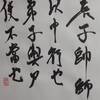 長子帥師
以中行也
弟子輿尸
使不當也